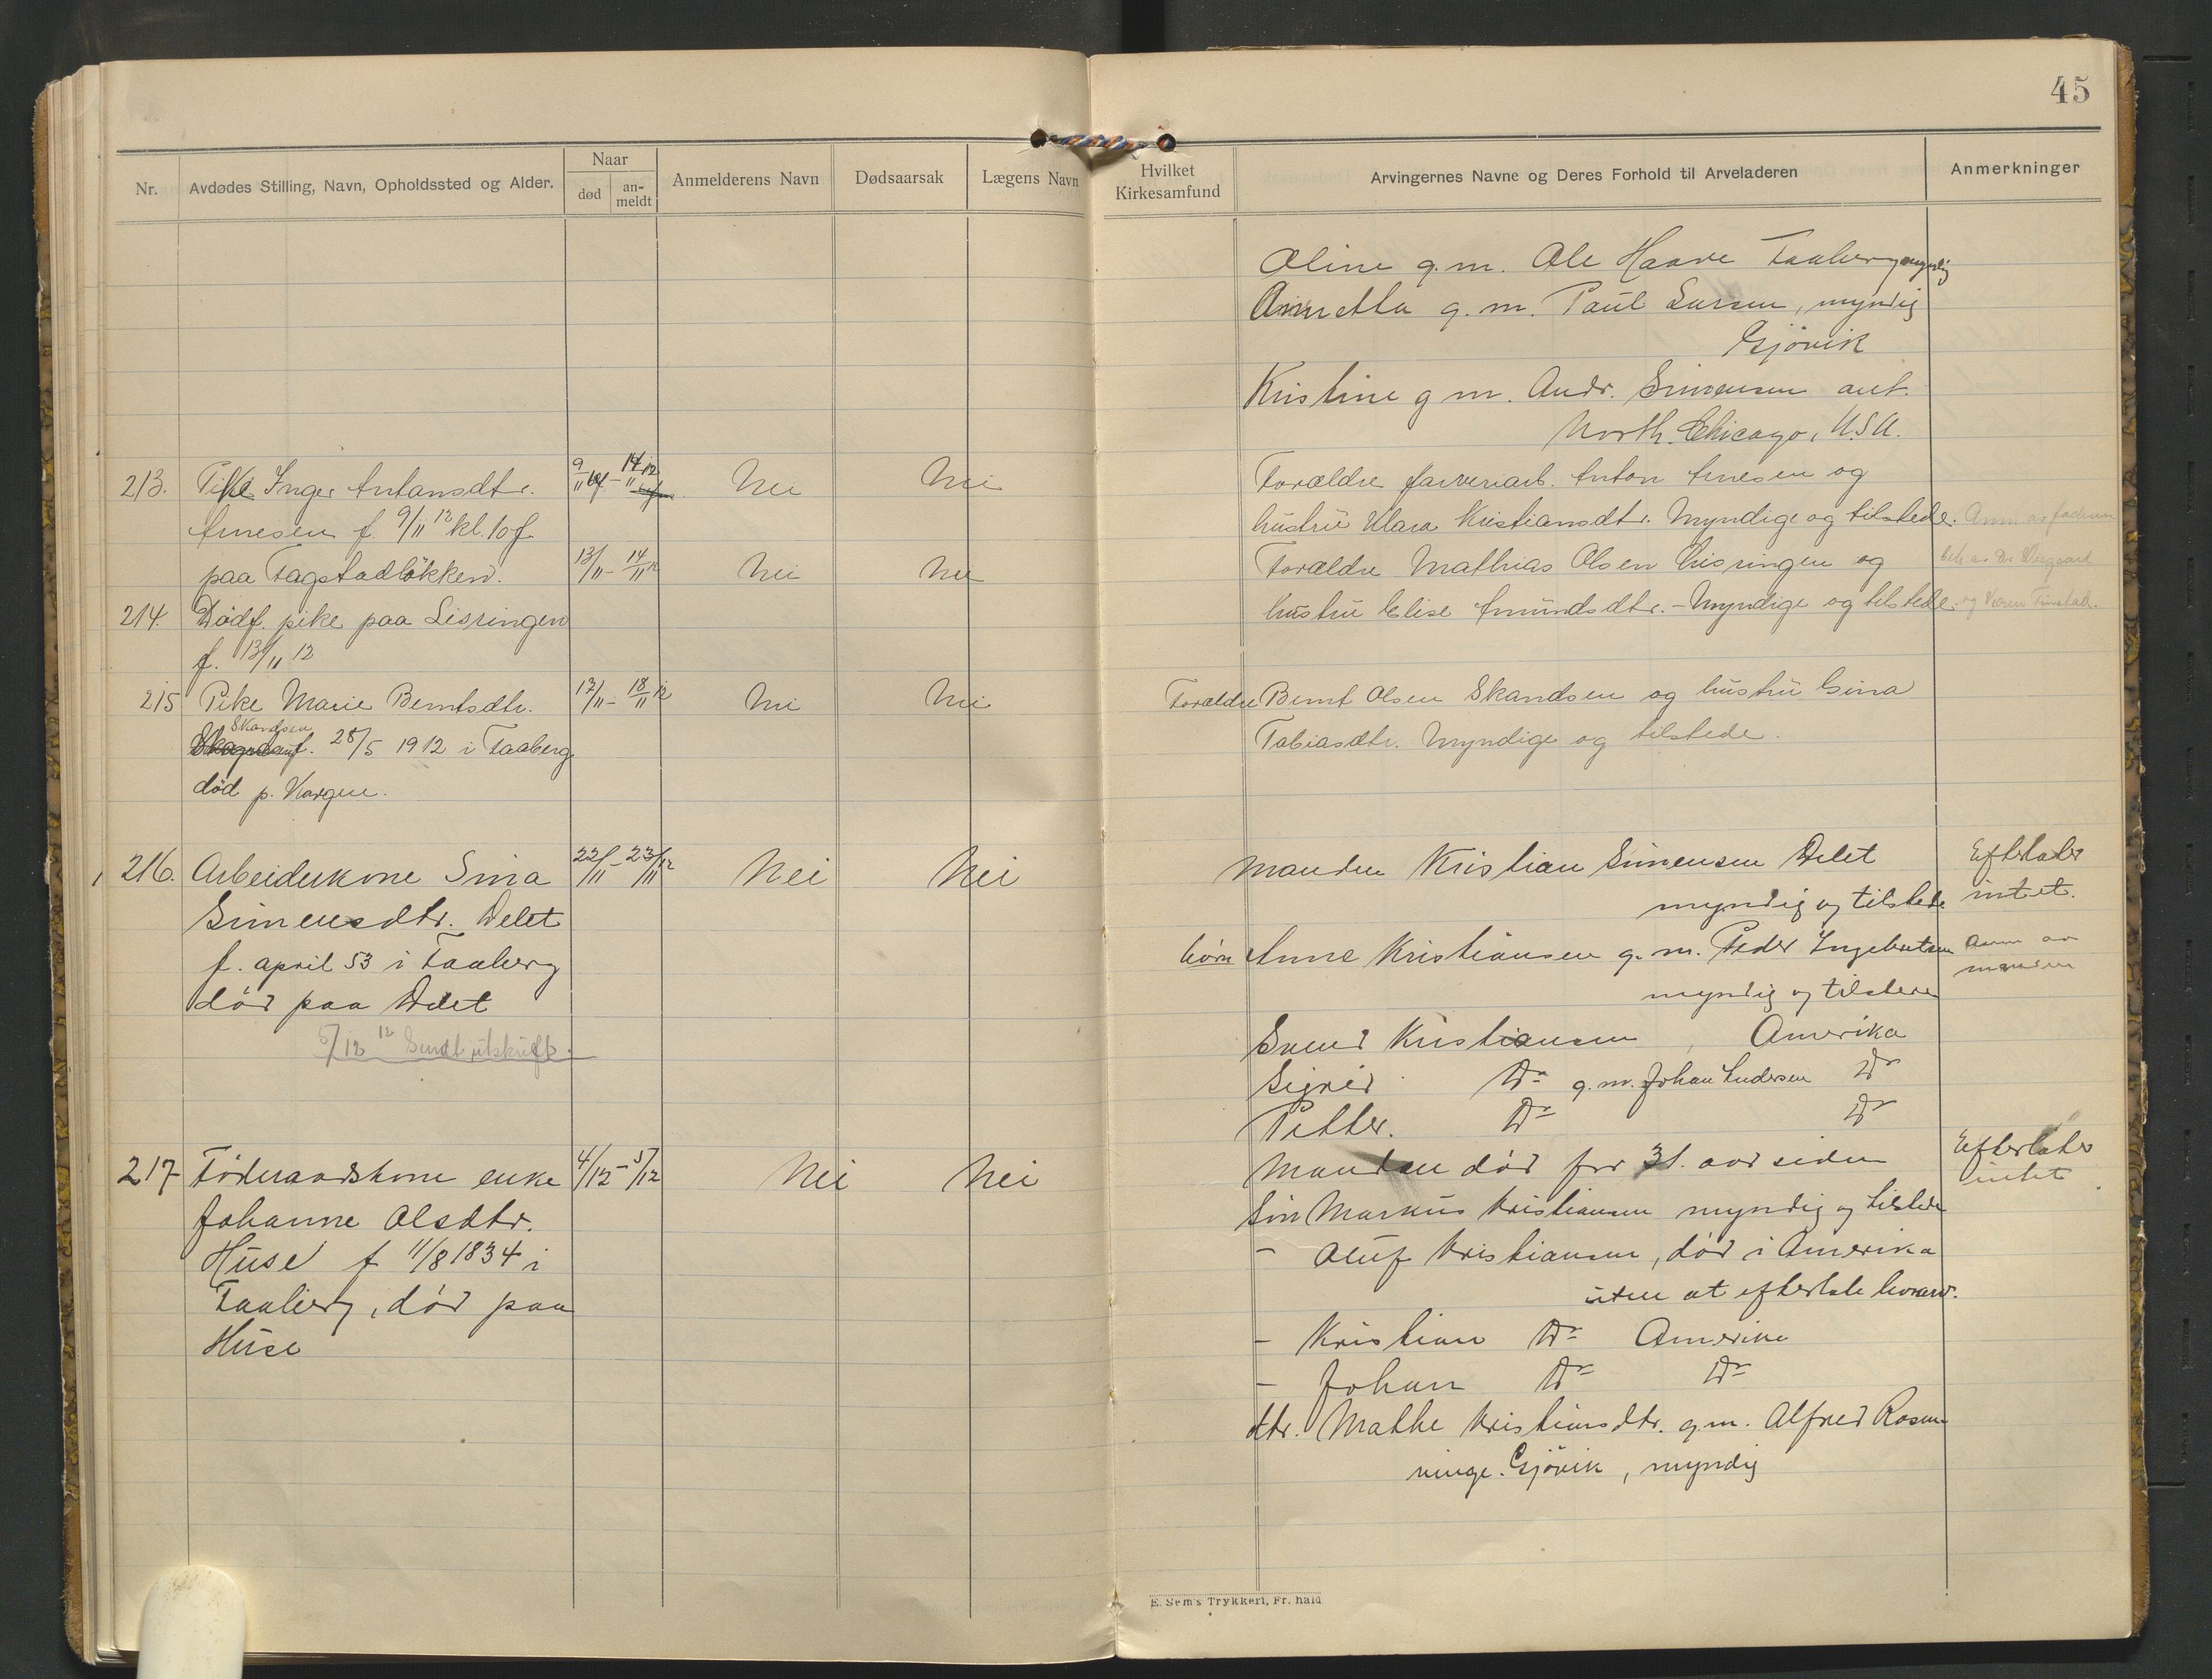 45
Nr.
Avdødes Stilling, Navn, Opholdssted og Alder.
Naar
død
an-
meldt
Anmelderens Navn
Dødsaarsak
Lægens Navn
Hvilket
Kirkesamfund
Arvingernes Navne og Deres Forhold til Arveladeren
Anmerkninger
Oline g.m. Ole Haave Faaberg myndig
Annetta g.m. Paul Larsen, myndig
Gjövik
Kristine g m. Andr. Simensen ant.
North. Chicago, U.S.A.
213. Pike Inger Antonsdtr. 9/11 - 14/11 12 Nei Nei
Arnesen f. 9/11 12 kl. 10 f.
paa Fagstadløkken.
Forældre farveriarb. Anton Arnesen og
hustru Klara Kristiansdtr. Myndige og tilstede. Anm. av faderen
214. Dödf. pike paa Lisringen 13/11 - 14/11 12 Nei Nei
f. 13/11 12
Forældre Mathias Olsen Lisringen og
hustru Elise Amundsdtr. - Myndige og tilstede.
215 Pike Marie Berntsdtr. 17/11 - 18/11 12 Nei Nei
Skandsen
f. 28/5 1912 i Faaberg
död p. Korgen.
Forældre Bernt Olsen Skandsen og hustru Gina
Tobiasdtr. Myndige og tilstede.
216. Arbeiderkone Sina 22/11 - 23/11 12 Nei Nei
Simensdtr. Delet
f. april 53 i Faaberg
död paa Delet
5/12 12 Sendt utskrift.
Manden Kristian Simensen Delet
myndig og tilstede
Efterlater
intet.
börn Anne Kristiansen g.m. Peder Ingebretsen
myndig og tilstede
Anm av
manden
Svend Kristiansen, Amerika
Sigrid Do g.m. Johan Andersen Do
Petter. Do Do
217 Föderaadskone enke 4/12 - 5/12 Nei Nei
Johanne Olsdtr.
Huse f 11/8 1834 i
Faaberg, död paa
Huse
Manden död for 31. aar siden
Efterlater
intet
Sön Markus Kristiansen myndig og tilstede
- Oluf Kristiansen, död i Amerika
uten at efterlate livsarv.
- Kristian Do Amerika
- Johan Do Do
dtr. Mathe Kristiansdtr. g.m. Alfred Rosen-
vinge. Gjövik, myndig
E. Sem's Trykkeri, Fr. hald